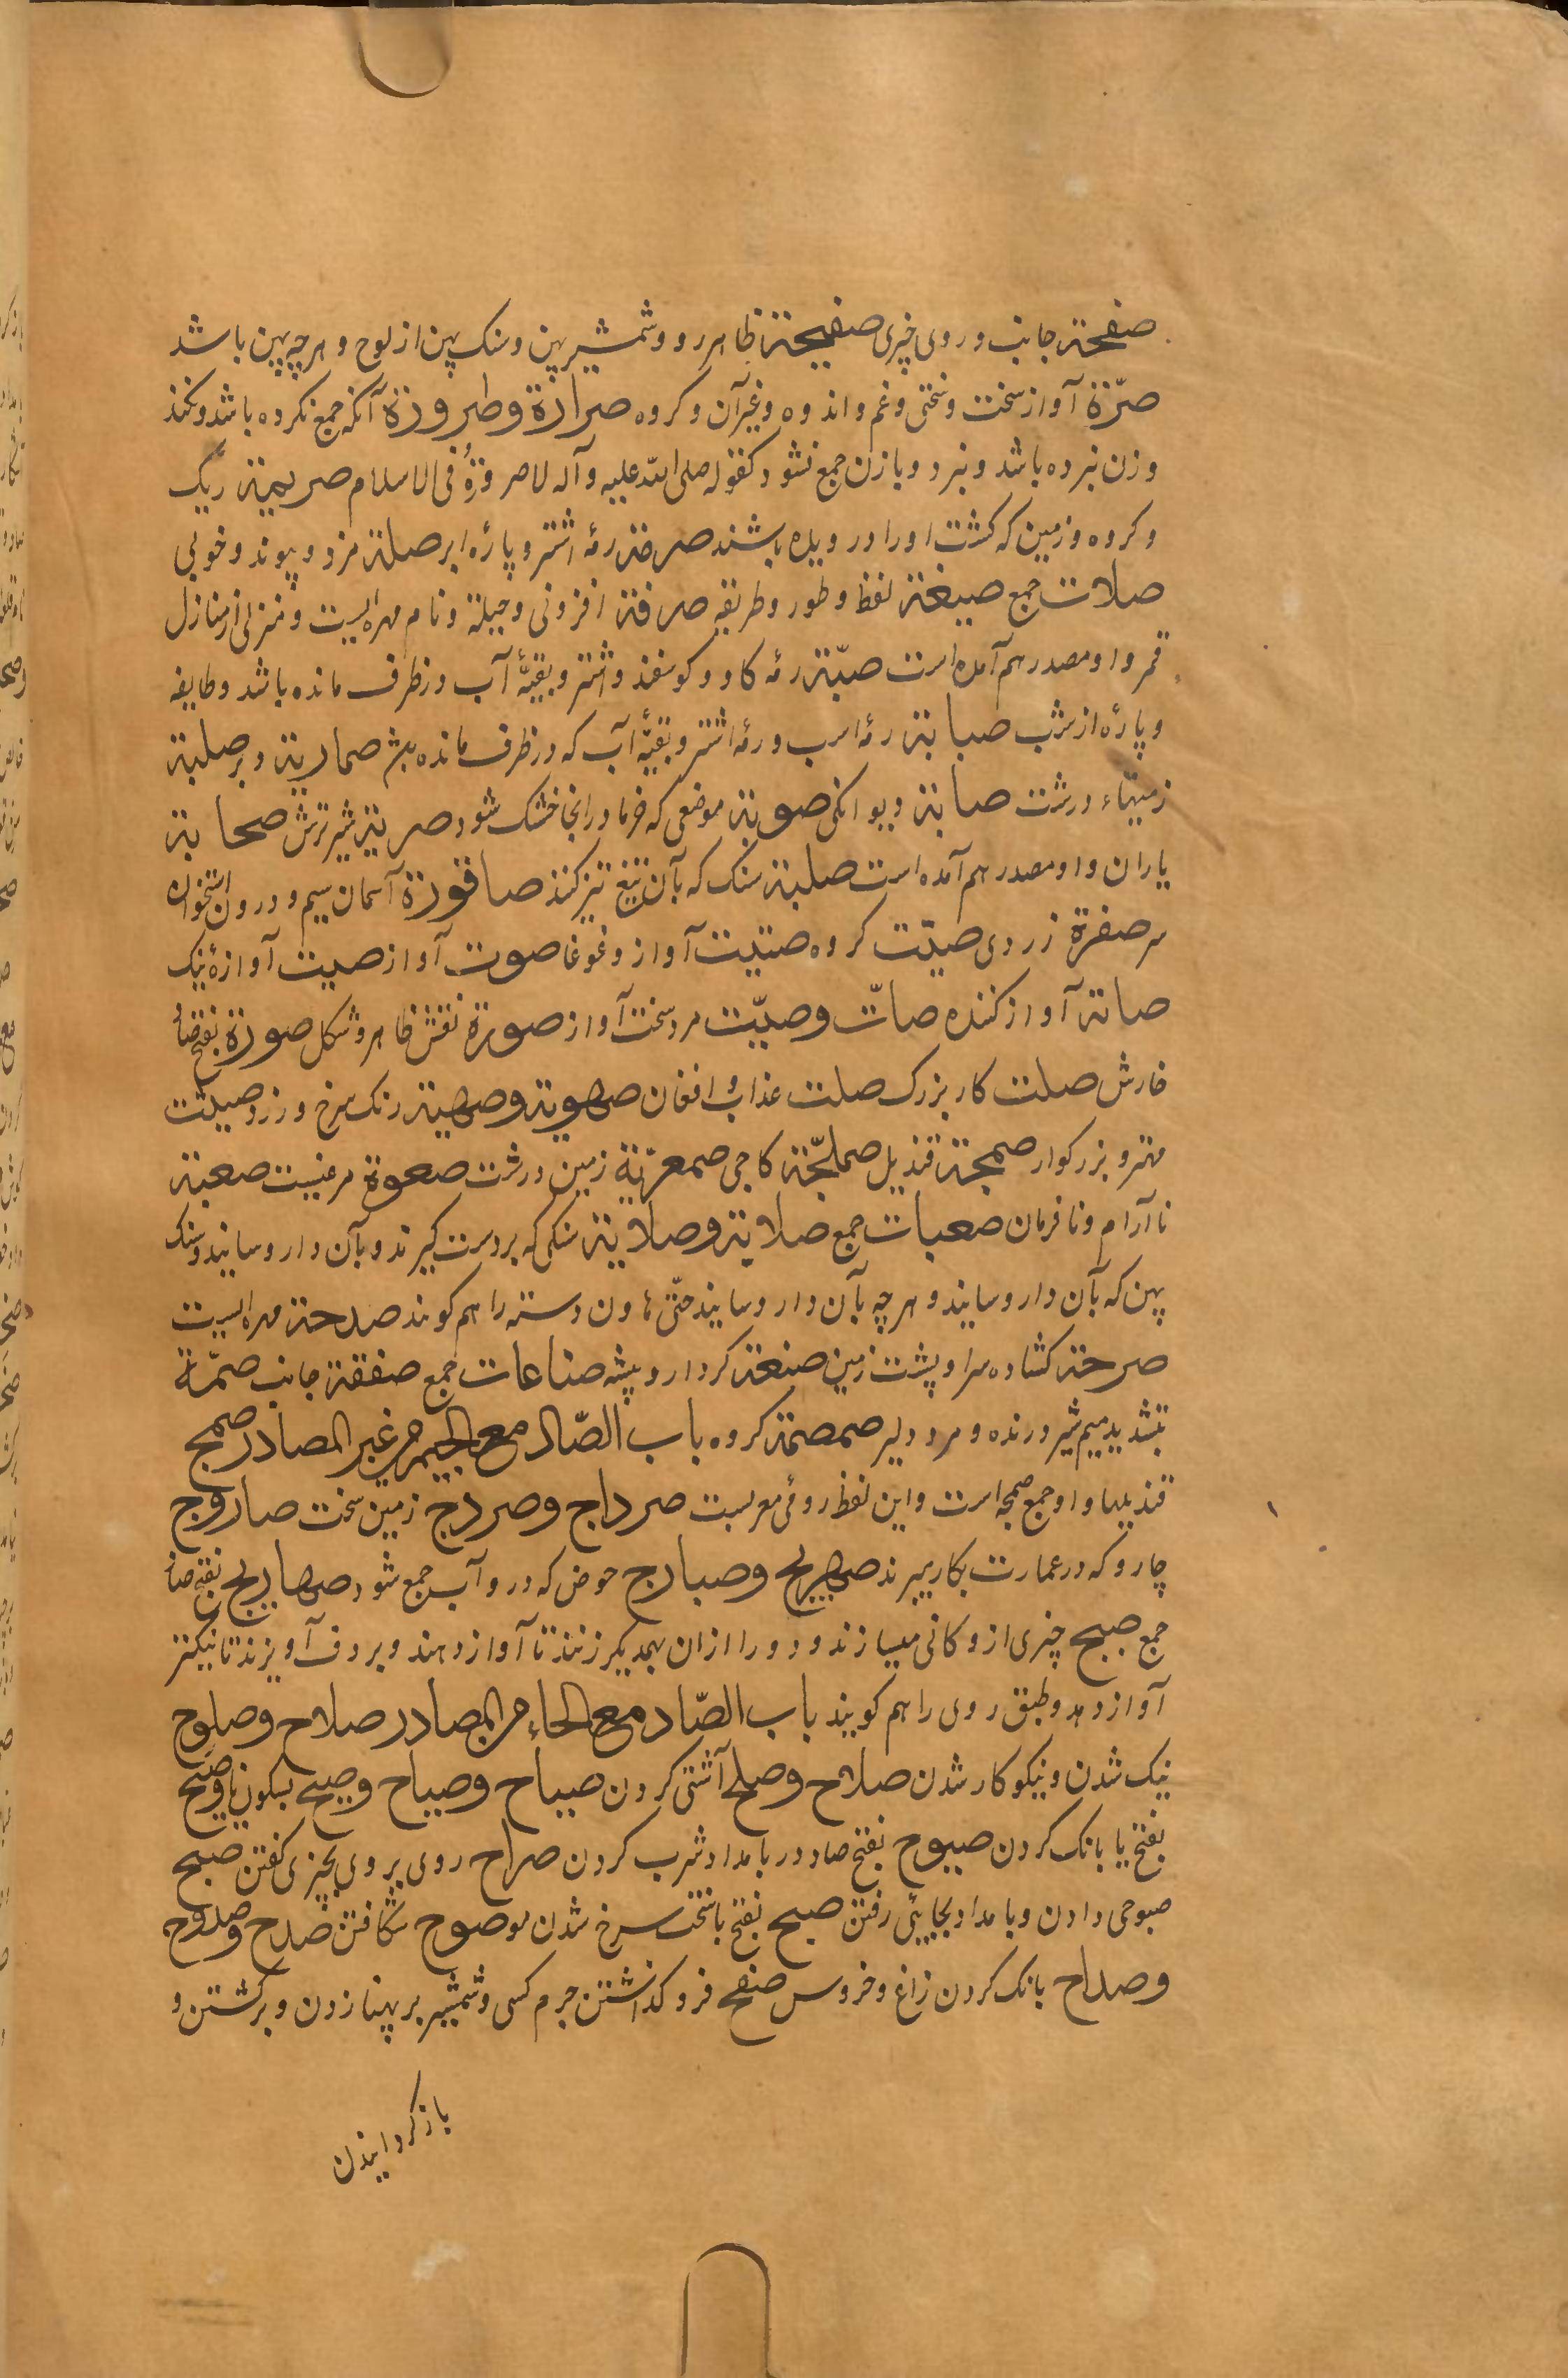 صفحة جانب و روی چیزی صفیحة ظاهر رو و شمشیر پهن و سنک پهن از لوح و هرچه پهن باشد
صرّة آواز سخت و سختی و غم و اندوه و غیر آن و کروه صرارة و صرورة آنکه حج نکرده باشد و نکند
و زن نبرده باشد و نبرد و با زن جمع نشود کقوله صلی الله علیه وآله لا صرورةُ فی الاسلام صریمة ریک
و کروه و زمین که کشت او را درویده باشند صرمة رمهٔ اشتر و پارهٔ ابر صلة مزد و پیوند و خوبی
صلات جمع صیغة لفظ و طور و طریقه صرفة افزونی و حیلة و نام مهره‌ایست و منزلی از منازل
قمر و او مصدر هم آمده است صبّة رمهٔ کاو و کوسفند و اشتر و بقیّهٔ آب در ظرف مانده باشد و طایفه
و پارهٔ از شب صبابة رمهٔ اسب و رمهٔ اشتر و بقیّهٔ آب که در ظرف مانده باشد صماریة و برصلبة
زمینهاء درشت صابة دیوانکی صوبة موضعی که خرما در انجا خشک شود صربة شیر ترش صحابة
یاران و او مصدر هم آمده است صلبة سنک که بآن تیغ تیز کنند صاقورة آسمان سیم و درون استخوان
سر صفرة زردی صیّت کروه صتیت آواز و غوغا صوت آواز صیت آوازهٔ نیک
صاتة آواز کننده صاتّ و صیّت مرد سخت آواز صورة نقش ظاهر و شکل صورة بفتح صاد
خارش صلت کار بزرک صلت عذاب و افغان صهوبة و صهبة رنک سرخ و زرد صیلت
مهتر و بزرکوار صمجة قندیل صملجّة کاجی صمعریّة زمین درشت صعوة مرغیست صعبة
ناآرام و نافرمان صعبات جمع صلایة و صلایة سنکی که بر دست کیرند و بآن دارو سایند و سنک
پهن که بآن دارو سایند و هرچه بآن دارو سایند حتّی هاون دسته را هم کویند صدحة مهره‌ایست
صرحة کشاده سرا و پشت زمین صنعة کردار و پیشه صناعات جمع صفقة جانب صمّة
بتشدید میم شیر درنده و مرد دلیر صمصمة کروه باب الصّاد مع الجیم من غیر المصادر صمج
قندیلها و او جمع صمجه است و این لفظ رومی معربست صرداج و صردج زمین سخت صاروج
چارو که در عمارت بکار میبرند صهریج و صبارج حوض که درو آب جمع شود صهاریج بفتح صاد
جمع صبج چیزی از وکانی میسازند و دو را ازان بهمدیکر زنند تا آواز دهند و بر دف آویزند تا نیکتر
آواز دهد و طبق روی را هم کویند باب الصّاد مع الحاء من المصادر صلاح و صلوح
نیک شدن و نیکوکار شدن صلاح و صلح آشتی کردن صیاح و صیاح و صیح بسکون یا و صیح
بفتح یا بانک کردن صبوح بفتح صاد در بامداد شرب کردن صراح روی بروی بچیزی کفتن صبح
صبوحی دادن و بامداد بجایی رفتن صبح بفتح با سخت سرخ شدن مو صوح شکافتن صدح و صدوح
و صداح بانک کردن زاغ و خروس صفح فرو کذاشتن جرم کسی و شمشیر بر پهنا زدن و برکشتن و
باز کردانیدن